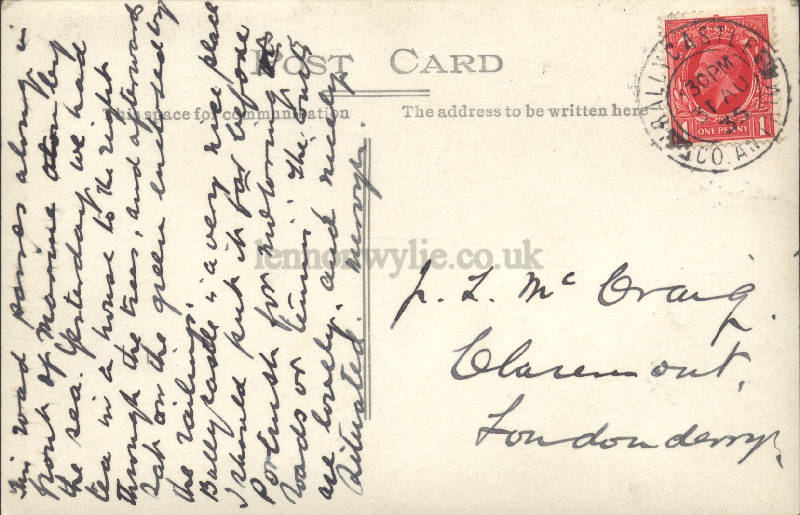 POST CARD
This space for communication
The address to be written here
This road passes along in
front of Marine by
the sea. Yesterday we had
tea in a house to the right
through the trees, and afterwards
sat on the green enclosed by
the railings.
Ballycastle is a very nice place
I should put it far before
Portrush for
roads or tennis. The courts
are lovely, and nicely
situated. Mervyn.
J. L. McCraig.
Claremont,
Londonderry.
BALLYCASTLE
30PM
AU
35
CO. AN
ONE PENNY
1
1
lennonwylie.co.uk